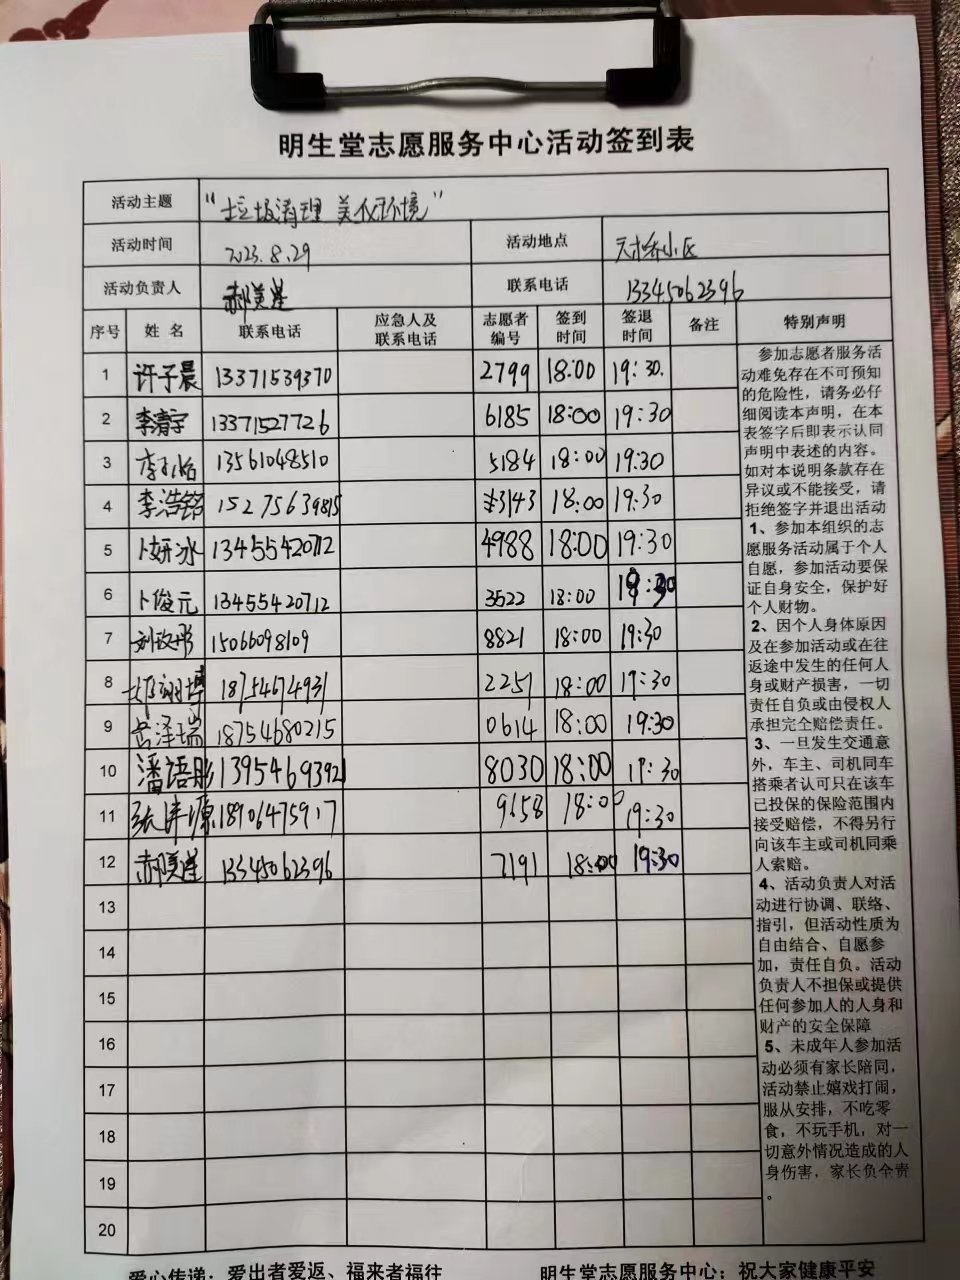 明生堂志愿服务中心活动签到表
活动主题 “垃圾清理 美化环境”
活动时间 2023.8.29 活动地点 天桥小区
活动负责人 郝美莲 联系电话 13345062396
序号 姓名 联系电话 应急人及联系电话 志愿者编号 签到时间 签退时间 备注 特别声明
1 许子晨 13371539370 2799 18:00 19:30.
2 李清宇 13371527726 6185 18:00 19:30
3 13561048510 5184 18:00 19:30
4 李浩铭 15275639815 3143 18:00 19:30
5 卜妍冰 13455420712 4988 18:00 19:30
6 卜俊元 13455420712 3522 18:00 19:30
7 刘政彤 15066098109 8821 18:00 19:30
8 18754674931 2251 18:00 19:30
9 吕泽瑞 18754680215 0614 18:00 19:30
10 潘语彤 13954693921 8030 18:00 19:30
11 18906475917 9658 18:00 19:30
12 郝美莲 13345062396 7191 18:00 19:30
13
14
15
16
17
18
19
20
参加志愿者服务活
动难免存在不可预知
的危险性，请务必仔
细阅读本声明，在本
表签字后即表示认同
声明中表述的内容。
如对本说明条款存在
异议或不能接受，请
拒绝签字并退出活动
1、参加本组织的志
愿服务活动属于个人
自愿，参加活动要保
证自身安全，保护好
个人财物。
2、因个人身体原因
及在参加活动或在往
返途中发生的任何人
身或财产损害，一切
责任自负或由侵权人
承担完全赔偿责任。
3、一旦发生交通意
外，车主、司机同车
搭乘者认可只在该车
已投保的保险范围内
接受赔偿，不得另行
向该车主或司机同乘
人索赔。
4、活动负责人对活
动进行协调、联络、
指引，但活动性质为
自由结合、自愿参
加，责任自负。活动
负责人不担保或提供
任何参加人的人身和
财产的安全保障
5、未成年人参加活
动必须有家长陪同，
活动禁止嬉戏打闹，
服从安排，不吃零
食，不玩手机，对一
切意外情况造成的人
身伤害，家长负全责
。
爱心传递：爱出者爱返、福来者福往 明生堂志愿服务中心：祝大家健康平安